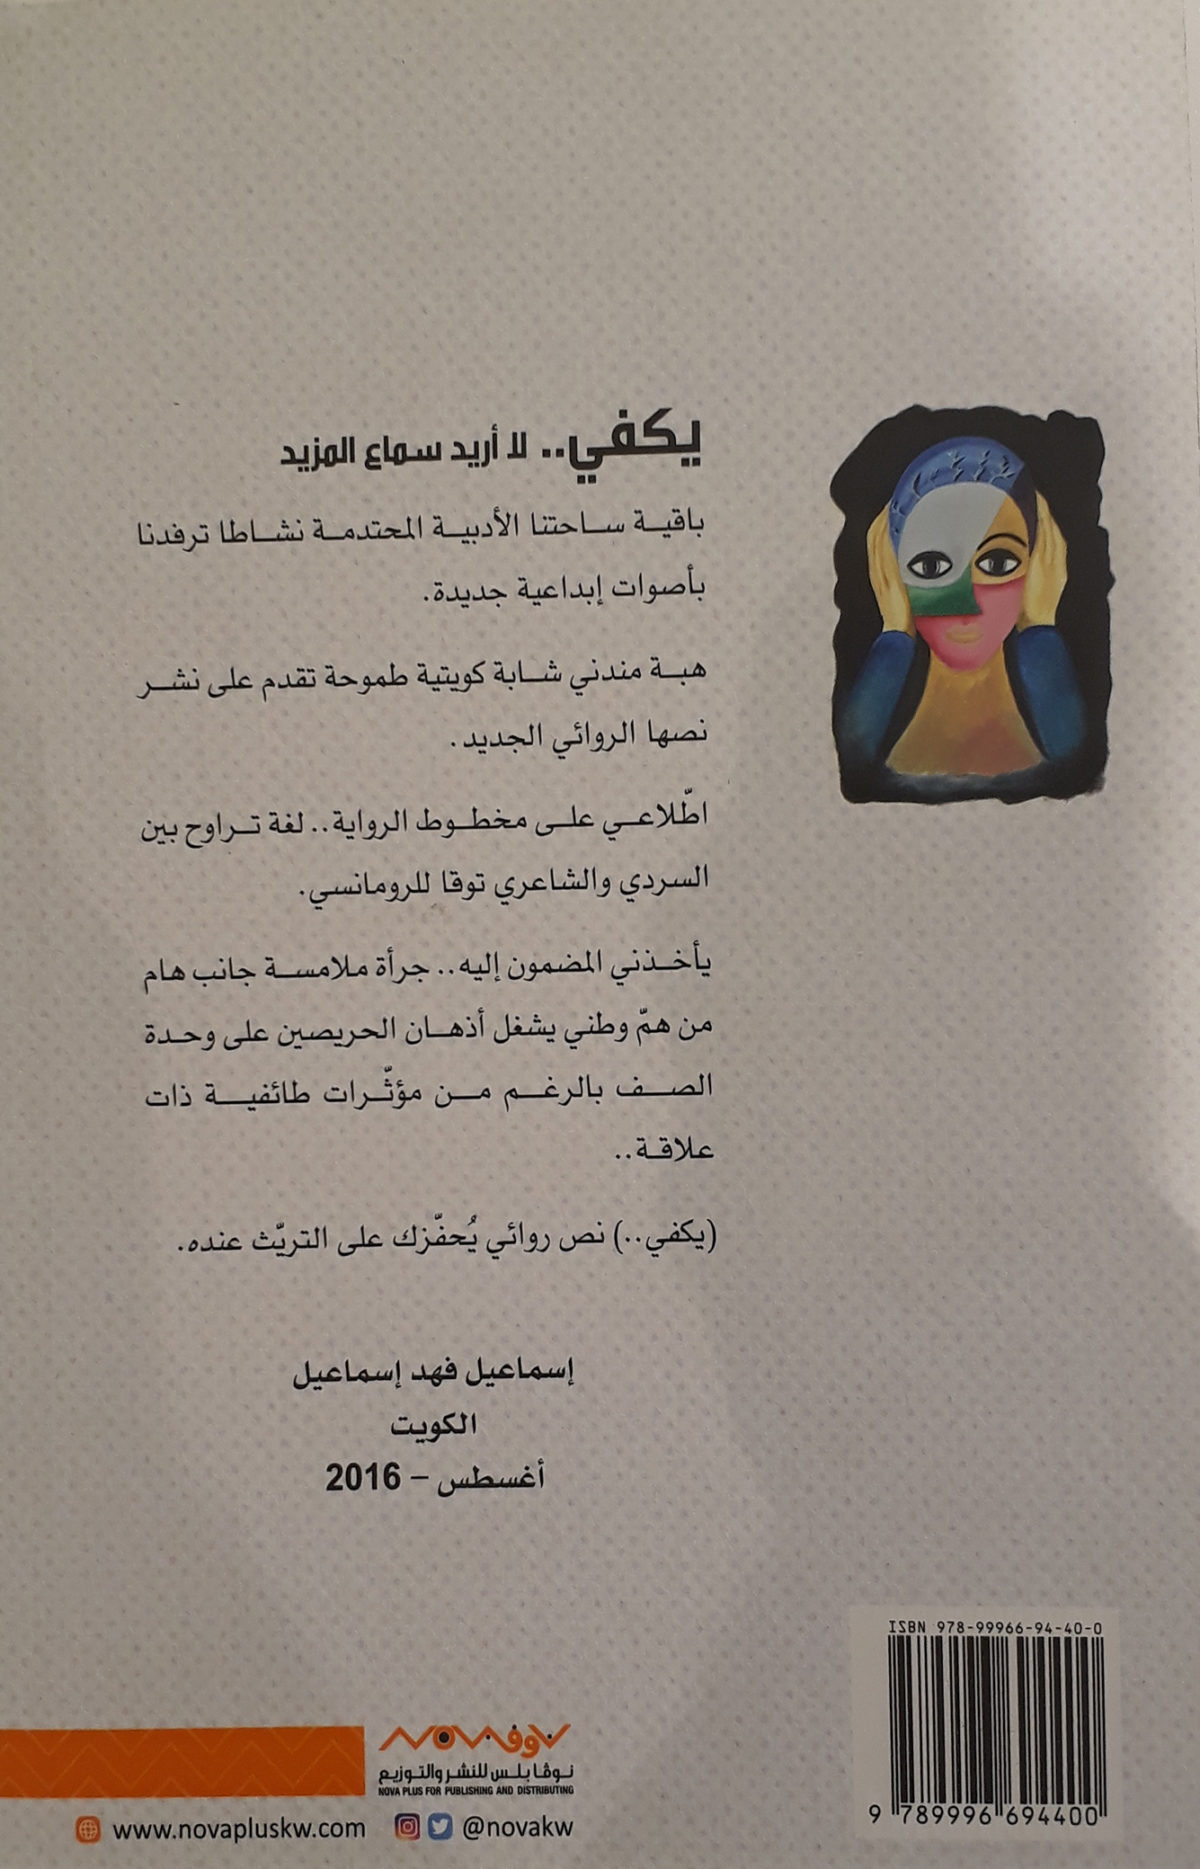 يكفي.. لا أريد سماع المزيد
باقية ساحتنا الأدبية المحتدمة نشاطا ترفدنا
بأصوات إبداعية جديدة.
هبة مندني شابة كويتية طموحة تقدم على نشر
نصها الروائي الجديد.
اطّلاعي على مخطوط الرواية.. لغة تراوح بين
السردي والشاعري توقا للرومانسي.
يأخذني المضمون إليه.. جرأة ملامسة جانب هام
من همّ وطني يشغل أذهان الحريصين على وحدة
الصف بالرغم من مؤثّرات طائفية ذات
علاقة..
(يكفي..) نص روائي يُحفّزك على التريّث عنده.
إسماعيل فهد إسماعيل
الكويت
أغسطس – 2016
ISBN 978-99966-94-40-0
9 789996 694400
NOVA نوفا
نوڤا بلس للنشر والتوزيع
NOVA PLUS FOR PUBLISHING AND DISTRIBUTING
www.novapluskw.com @novakw